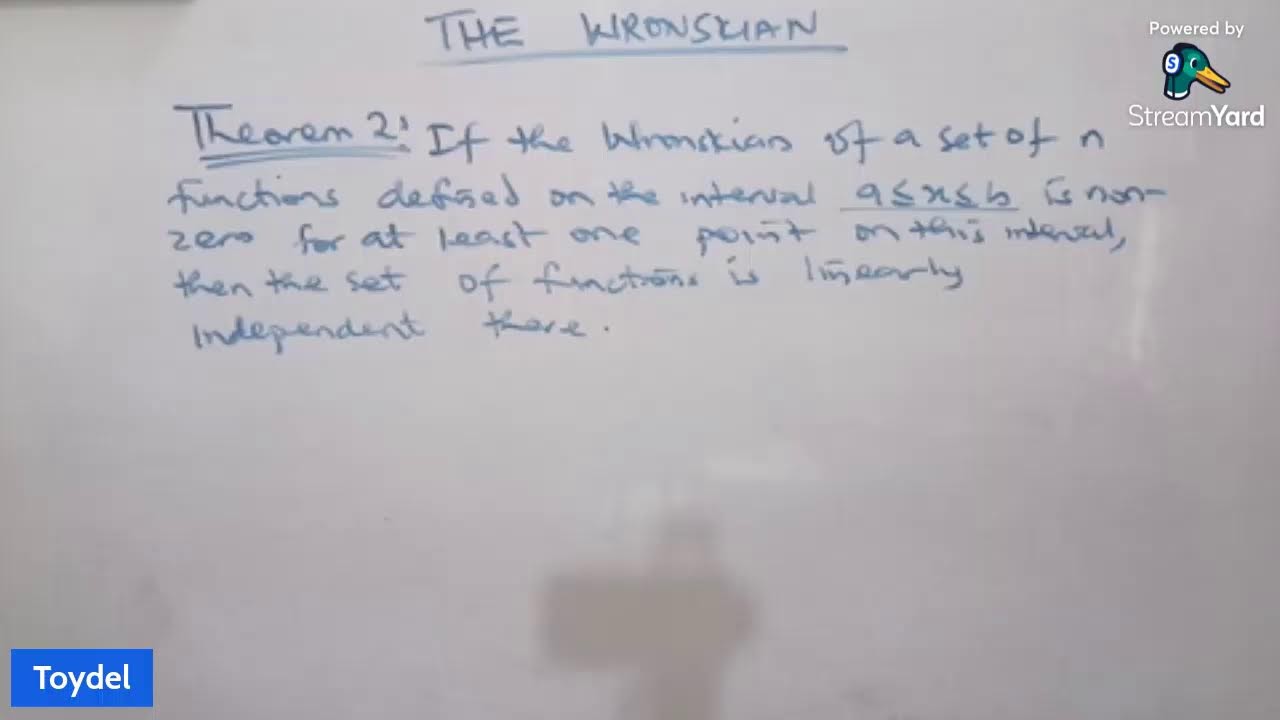 THE WRONSKIAN
Powered by
StreamYard
Theorem 2: If the Wronskian of a set of n
functions defined on the interval a ≤ x ≤ b is non-
zero for at least one point on this interval,
then the set of functions is linearly
independent there.
Toydel